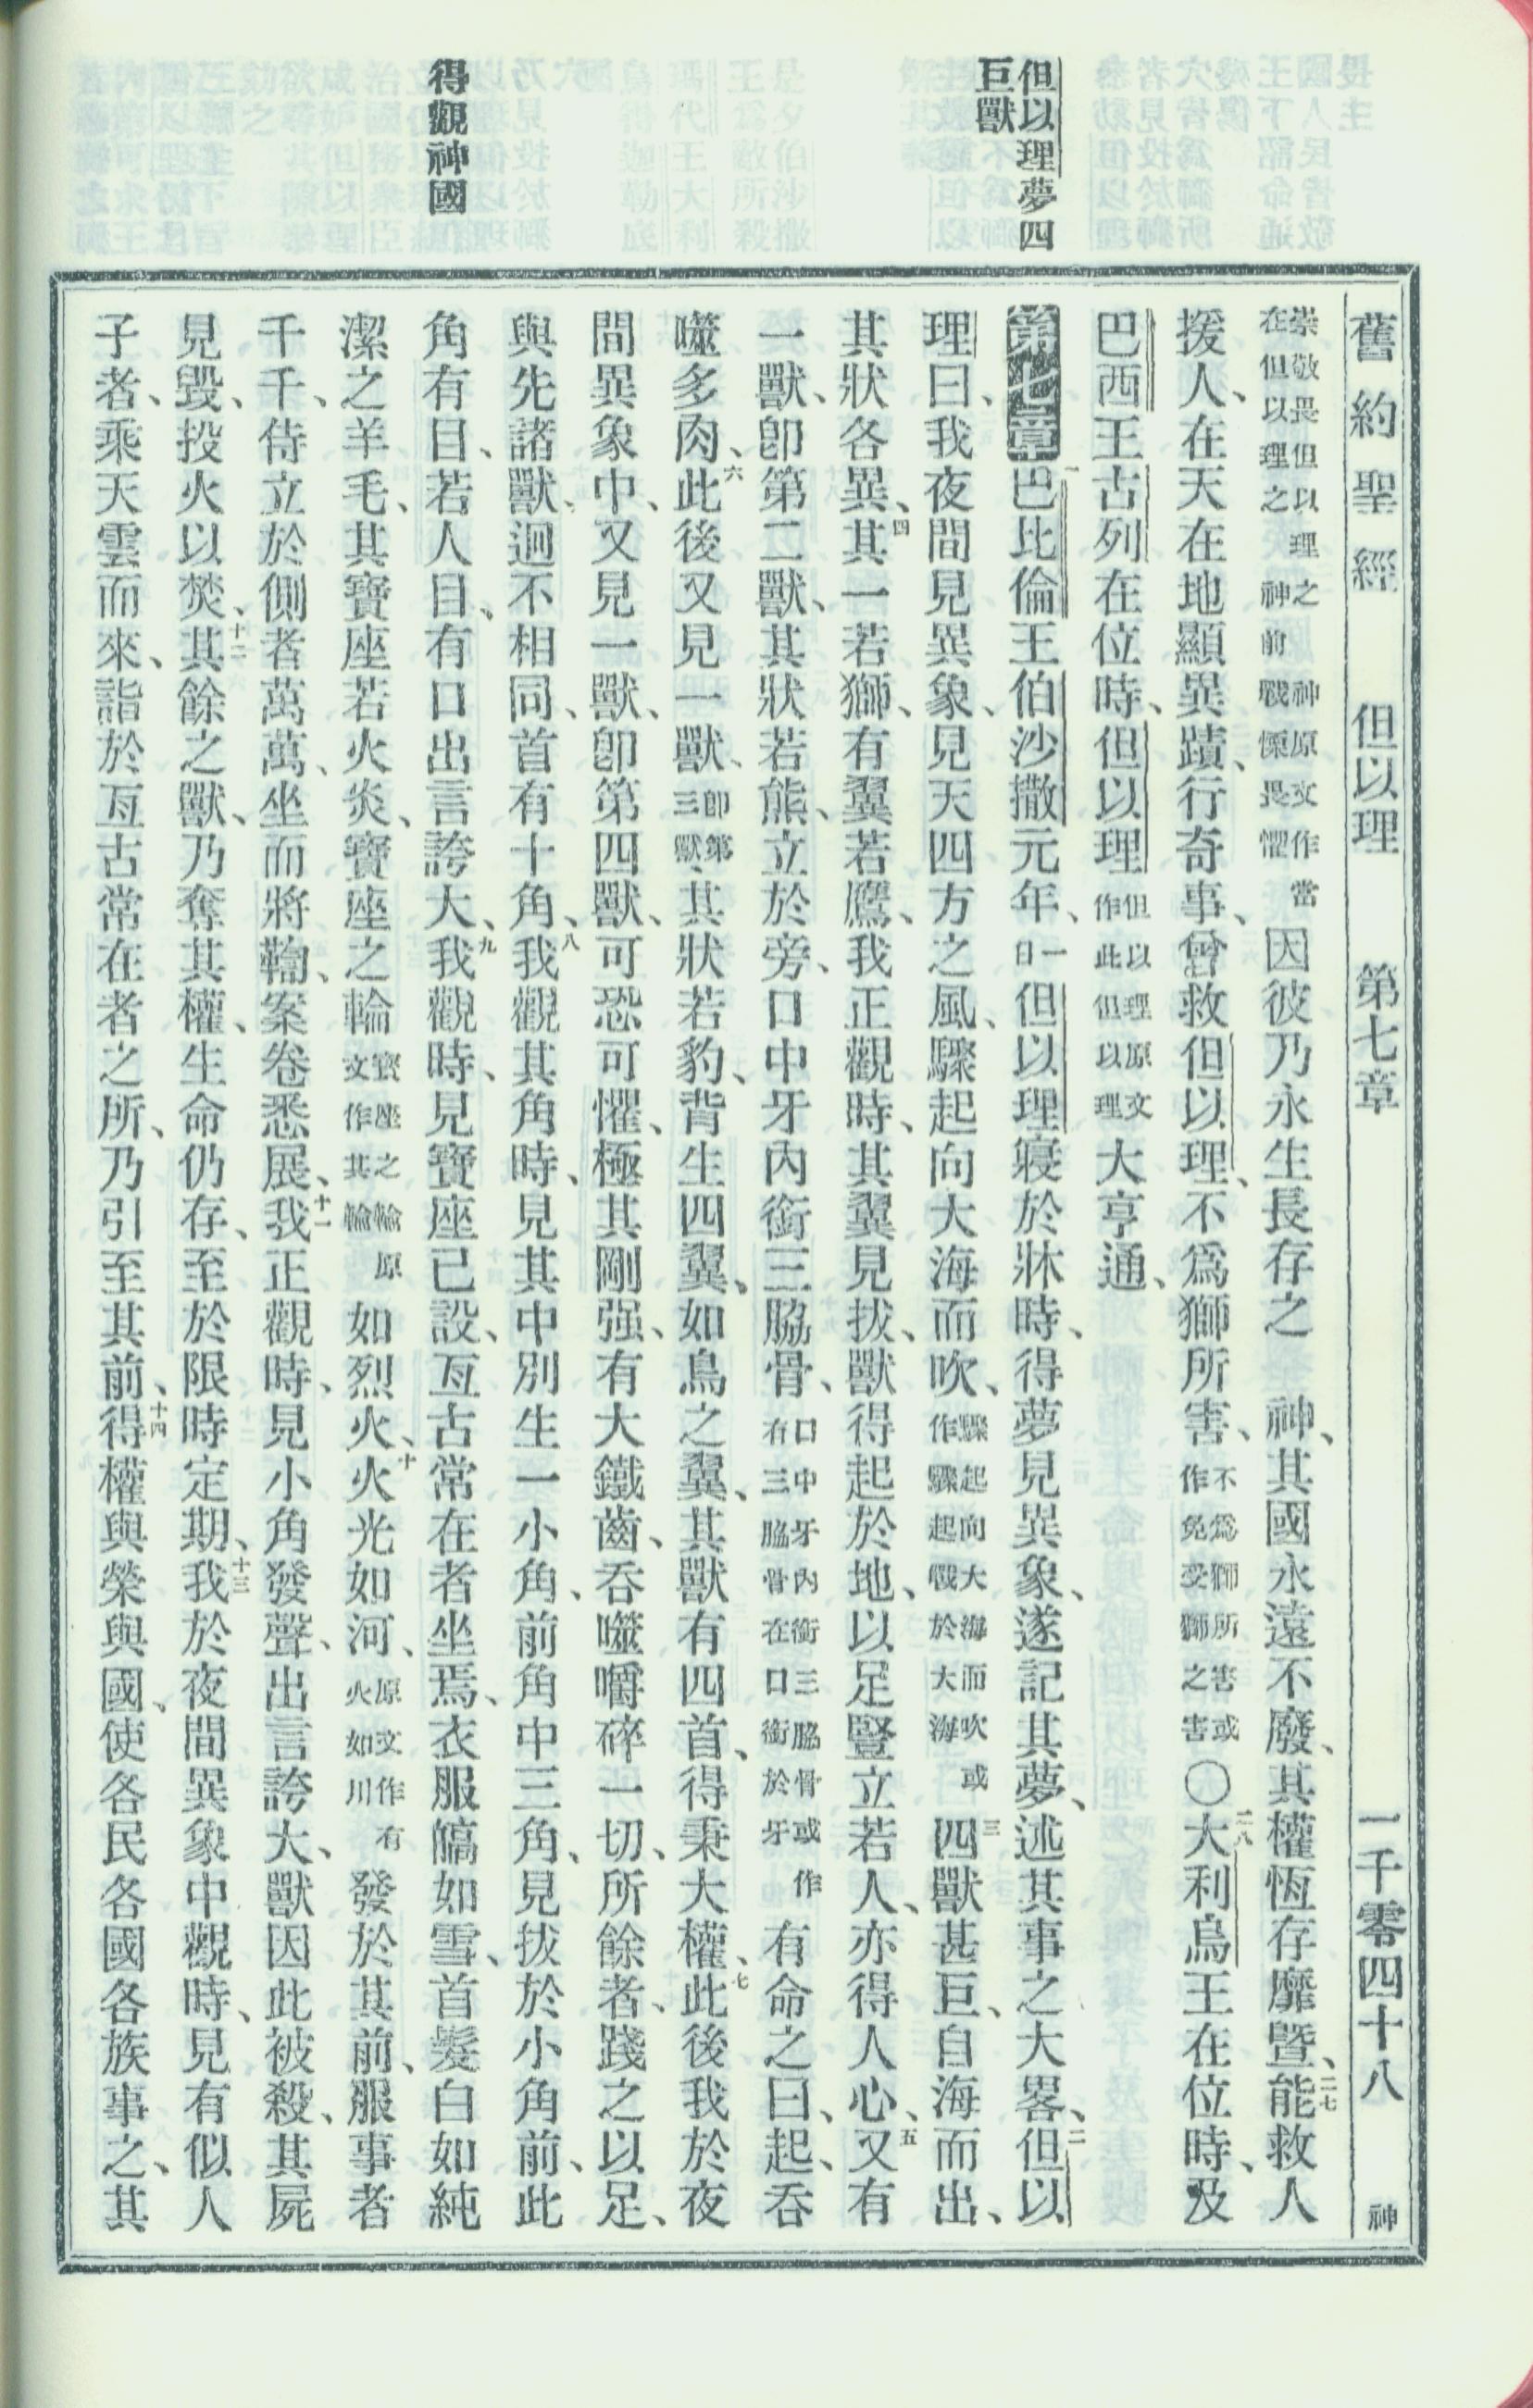 舊約聖經 但以理 第七章 一千零四十八 神
但以理夢四
巨獸
得觀神國
崇敬畏但以理之神原文作當
在但以理之神前戰慄畏懼
因彼乃永生長存之 神、其國永遠不廢、其權恆存靡曁、二七能救人
援人、在天在地顯異蹟、行奇事、曾救但以理、不爲獅所害、不爲獅所害或作免受獅之害〇二八大利烏王在位時、及
巴西王古列在位時、但以理但以理原文作此但以理大亨通、
第七章一巴比倫王伯沙撒元年、一日但以理寢於牀時、得夢見異象、遂記其夢、述其事之大畧、二但以
理曰、我夜間見異象、見天四方之風、驟起向大海而吹、驟起向大海而吹或作驟起戰於大海三四獸甚巨、自海而出、
其狀各異、四其一若獅、有翼若鷹、我正觀時、其翼見拔、獸得起於地、以足豎立若人、亦得人心、五又有
一獸、卽第二獸、其狀若熊、立於旁、口中牙內銜三脇骨、口中牙內銜三脇骨或作有三脇骨在口銜於牙有命之曰、起、吞
噬多肉、六此後又見一獸、卽第三獸、其狀若豹、背生四翼、如鳥之翼、其獸有四首、得秉大權、七此後我於夜
間異象中、又見一獸、卽第四獸、可恐可懼、極其剛强、有大鐵齒、吞噬嚼碎一切、所餘者、踐之以足、
與先諸獸、迥不相同、首有十角、八我觀其角時、見其中別生一小角、前角中三角、見拔於小角前、此
角有目、若人目、有口出言誇大、九我觀時、見寶座已設、亙古常在者坐焉、衣服皜如雪、首髮白如純
潔之羊毛、其寶座若火炎、寶座之輪寶座之輪原文作其輪如烈火、十火光如河、原文作有火如川發於其前、服事者
千千、侍立於側者萬萬、坐而將鞫、案卷悉展、十一我正觀時、見小角發聲、出言誇大、獸因此被殺、其屍
見毀、投火以焚、十二其餘之獸、乃奪其權、生命仍存、至於限時定期、十三我於夜間異象中觀時、見有似人
子者、乘天雲而來、詣於亙古常在者之所、乃引至其前、十四得權與榮與國、使各民各國各族事之、其